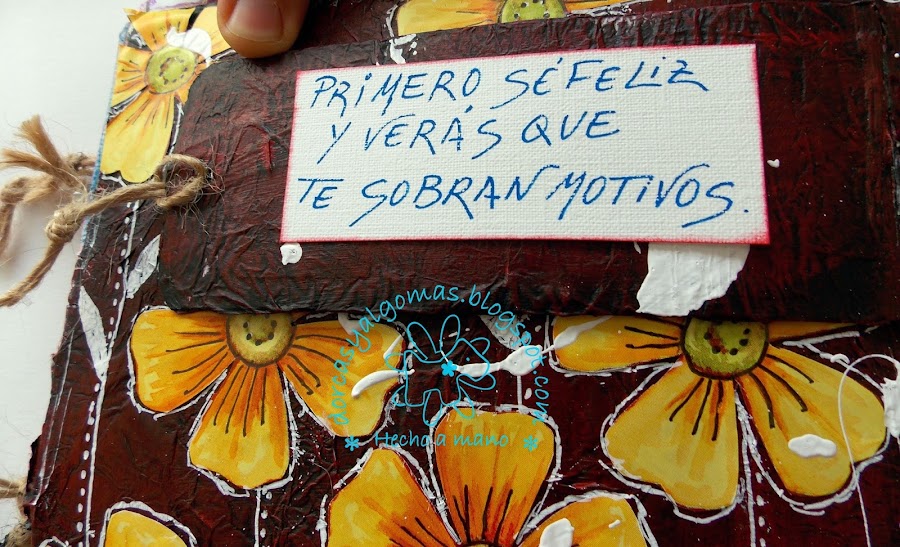 PRIMERO SÉ FELIZ
Y VERÁS QUE
TE SOBRAN MOTIVOS.
dorcasyalgomas.blogspot.com
* Hecho a mano *